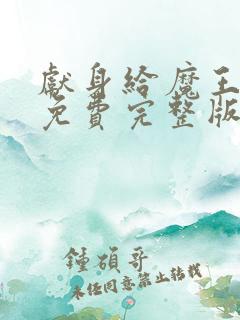 獻身給魔王
免費完整版
鍾碩哥
未經同意禁止轉載